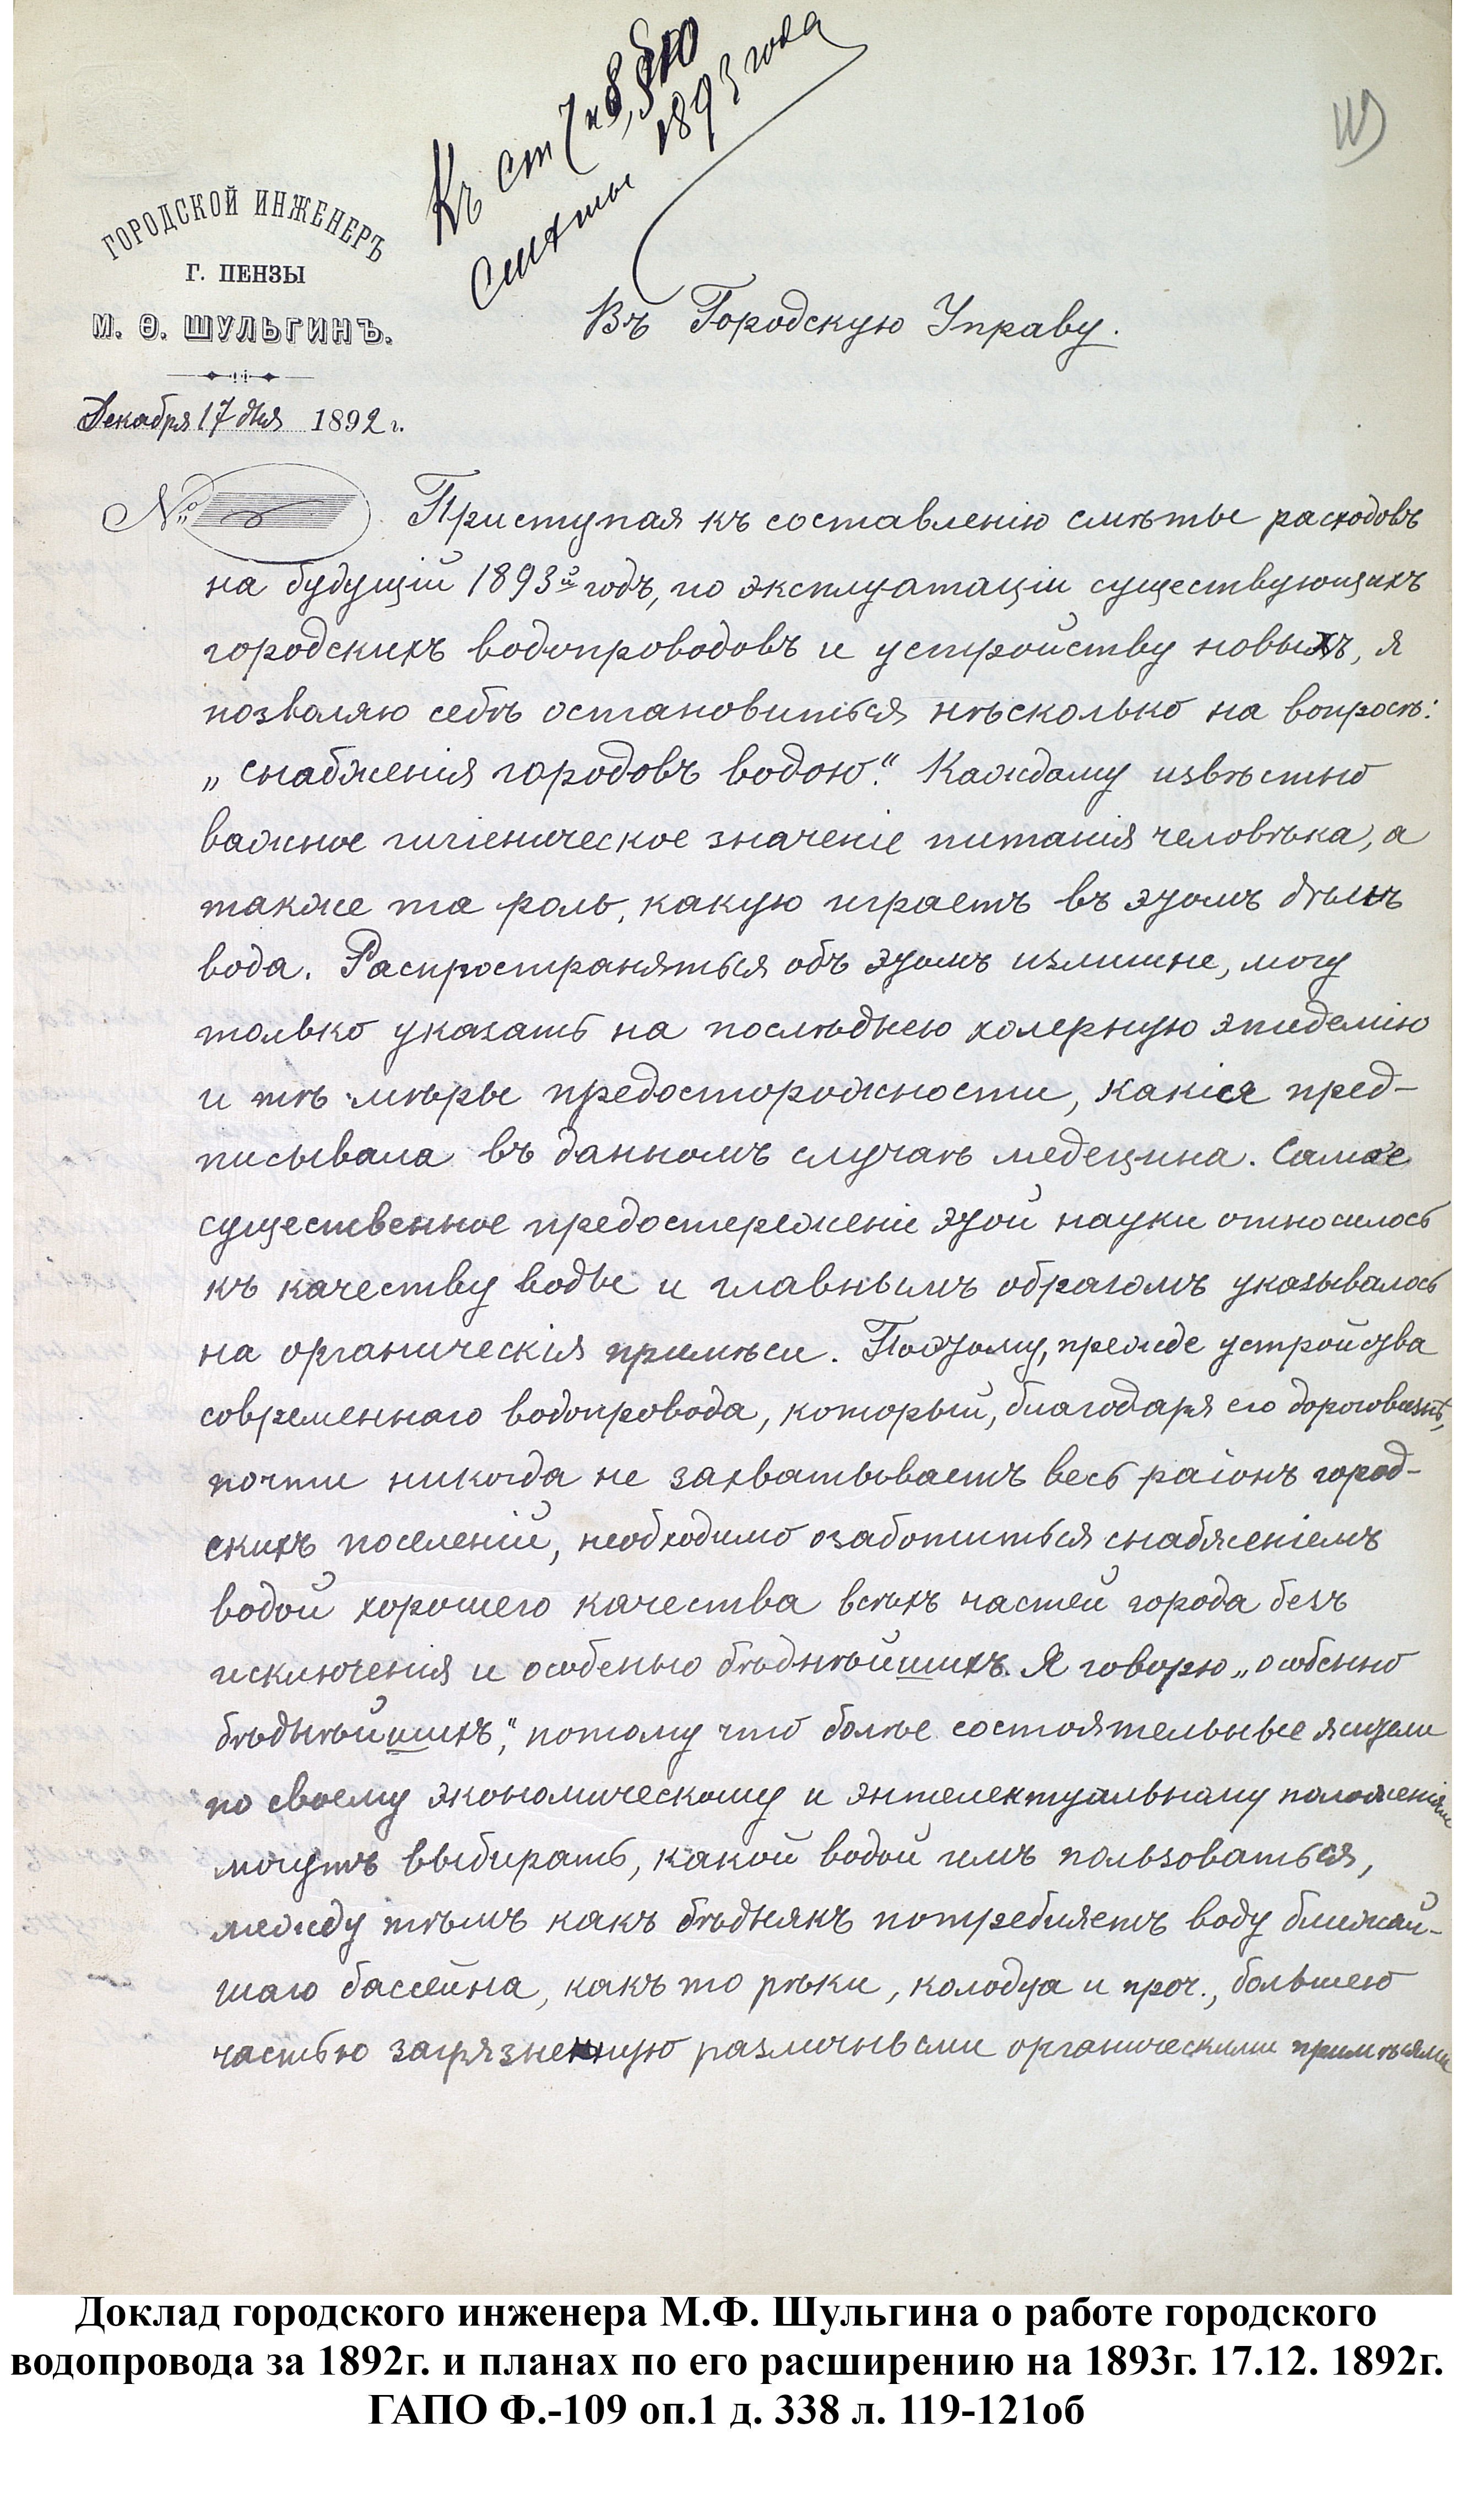 Къ ст 7 и 8,
смѣты 1893 года
ГОРОДСКОЙ ИНЖЕНЕРЪ
Г. ПЕНЗЫ
М. Ѳ. ШУЛЬГИНЪ.
Декабря 17 дня 1892 г.
№
Въ Городскую Управу.
Приступая къ составленію смѣты расходовъ
на будущій 1893й годъ, по эксплуатаціи существующихъ
городскихъ водопроводовъ и устройству новыхъ, я
позволяю себѣ остановиться нѣсколько на вопросѣ:
„снабженія городовъ водою“. Каждому извѣстно
важное гигіеническое значеніе питанія человѣка, а
также та роль, какую играетъ въ этомъ дѣлѣ
вода. Распространяться объ этомъ излишне, могу
только указать на послѣднею холерную эпидемію
и тѣ мѣры предосторожности, какія пред-
писывала въ данномъ случаѣ медецина. Самое
существенное предостереженіе этой науки относилось
къ качеству воды и главнымъ образомъ указывалось
на органическія примѣси. Поэтому, прежде устройства
современнаго водопровода, который, благодаря его дороговизнѣ,
почти никогда не захватываетъ весь раіонъ город-
скихъ поселеній, необходимо озаботиться снабженіемъ
водой хорошего качества всѣхъ частей города безъ
исключенія и особенно бѣднѣйшихъ. Я говорю „особенно
бѣднѣйшихъ“, потому что болѣе состоятельные жители
по своему экономическому и энтелектуальному положеніямъ
могутъ выбирать, какой водой имъ пользоваться,
между тѣмъ какъ бѣднякъ потребляетъ воду ближай-
шаго бассейна, какъ то рѣки, колодца и проч., большею
частью загрязненную различными органическими примѣсями
Доклад городского инженера М.Ф. Шульгина о работе городского
водопровода за 1892г. и планах по его расширению на 1893г. 17.12. 1892г.
ГАПО Ф.-109 оп.1 д. 338 л. 119-121об